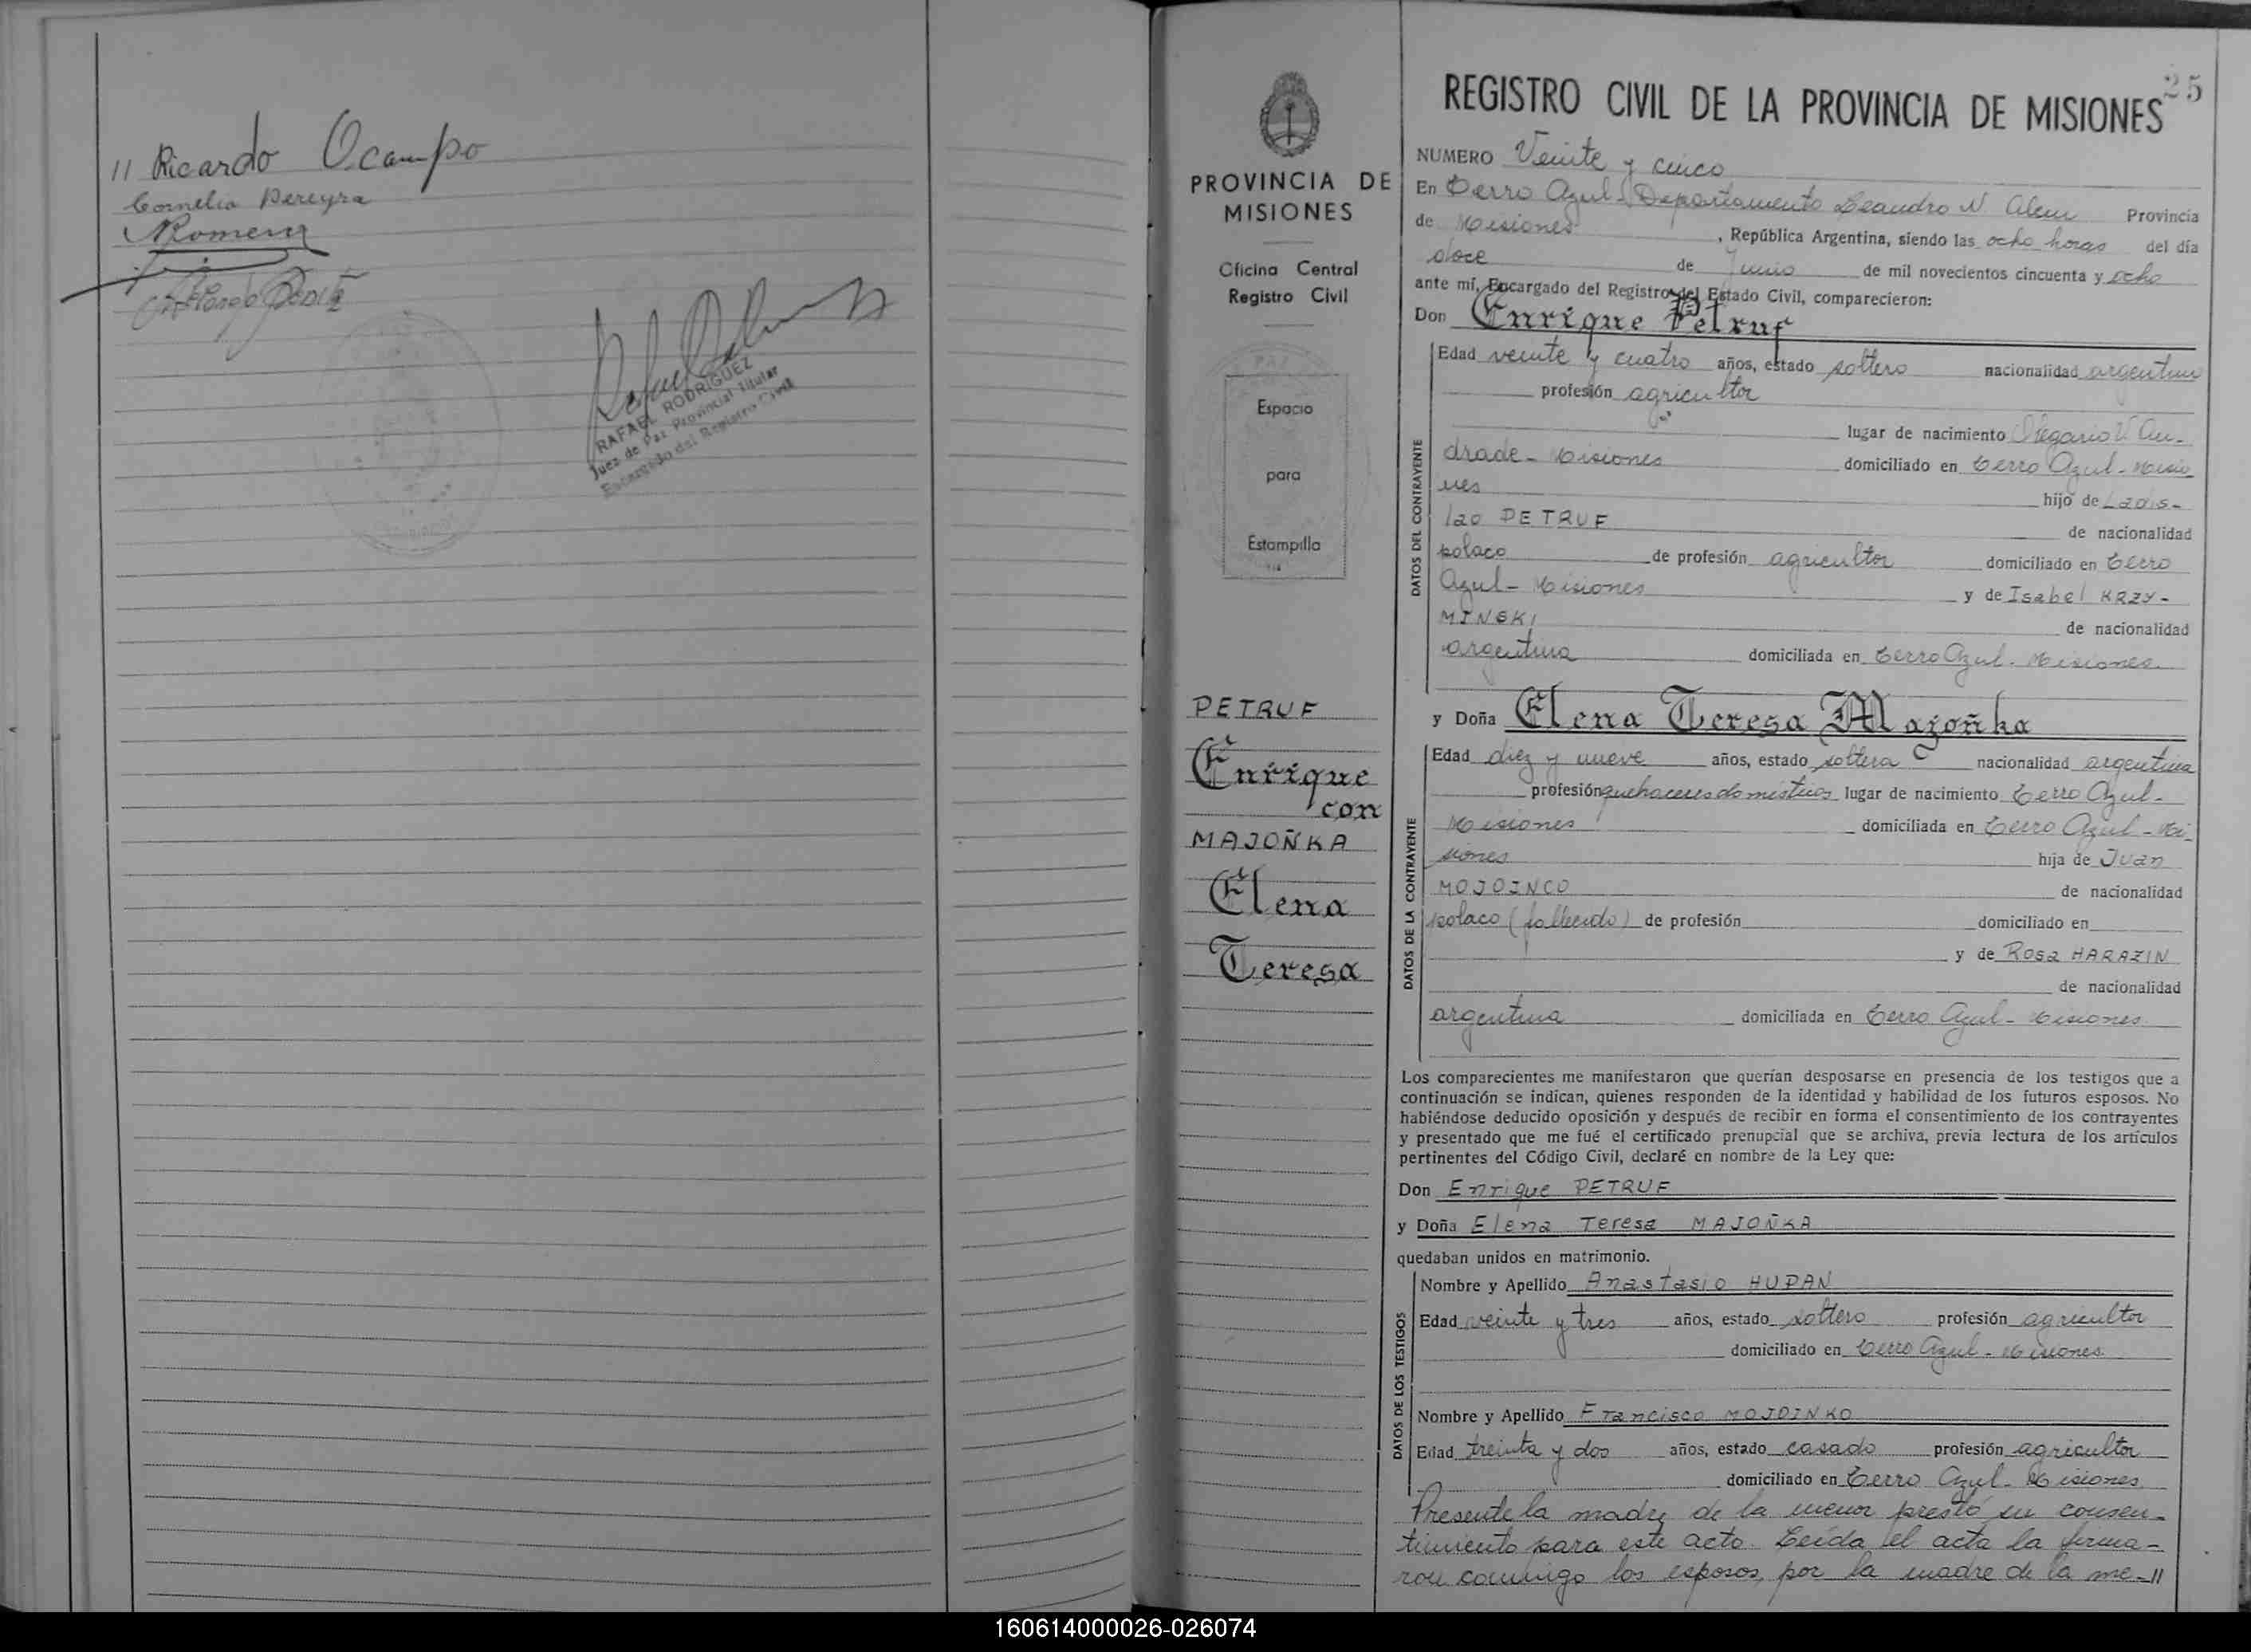 // Ricardo Ocampo
Cornelia Pereyra
RAFAEL RODRIGUEZ
Juez de Paz Provincial Titular
Encargado del Registro Civil
PROVINCIA DE
MISIONES
Oficina Central
Registro Civil
PAZ
Espacio
para
Estampilla
PETRUF
Enrique
con
MAJOÑKA
Elena
Teresa
25
REGISTRO CIVIL DE LA PROVINCIA DE MISIONES
NUMERO Veinte y cinco
En Cerro Azul - Departamento Leandro N Alem Provincia
de Misiones, República Argentina, siendo las ocho horas del día
doce de Junio de mil novecientos cincuenta y ocho
ante mí, Encargado del Registro del Estado Civil, comparecieron:
Don Enrique Petruf
Edad veinte y cuatro años, estado soltero nacionalidad argentino
profesión agricultor
lugar de nacimiento Olegario V. An-
drade - Misiones domiciliado en Cerro Azul - Misio
nes hijo de Ladis-
lao PETRUF de nacionalidad
polaco de profesión agricultor domiciliado en Cerro
Azul - Misiones y de Isabel KRZY-
MINSKI de nacionalidad
argentina domiciliada en Cerro Azul - Misiones
y Doña Elena Teresa Majoñka
Edad diez y nueve años, estado soltera nacionalidad argentina
profesión quehaceres domésticos lugar de nacimiento Cerro Azul -
Misiones domiciliada en Cerro Azul - Mi-
siones hija de Juan
MOJOINCO de nacionalidad
polaco (fallecido) de profesión domiciliado en
y de Rosa HARAZIN
de nacionalidad
argentina domiciliada en Cerro Azul - Misiones
Los comparecientes me manifestaron que querían desposarse en presencia de los testigos que a
continuación se indican, quienes responden de la identidad y habilidad de los futuros esposos. No
habiéndose deducido oposición y después de recibir en forma el consentimiento de los contrayentes
y presentado que me fué el certificado prenupcial que se archiva, previa lectura de los artículos
pertinentes del Código Civil, declaré en nombre de la Ley que:
Don Enrique PETRUF
y Doña Elena Teresa MAJOÑKA
quedaban unidos en matrimonio.
Nombre y Apellido Anastasio HUPAN
Edad veinte y tres años, estado soltero profesión agricultor
domiciliado en Cerro Azul - Misiones
Nombre y Apellido Francisco MOJOINKO
Edad treinta y dos años, estado casado profesión agricultor
domiciliado en Cerro Azul - Misiones
Presente la madre de la menor prestó su consen-
timiento para este acto. Leída el acta la firma-
ron conmigo los esposos, por la madre de la me-//
DATOS DEL CONTRAYENTE
DATOS DE LA CONTRAYENTE
DATOS DE LOS TESTIGOS
160614000026-026074